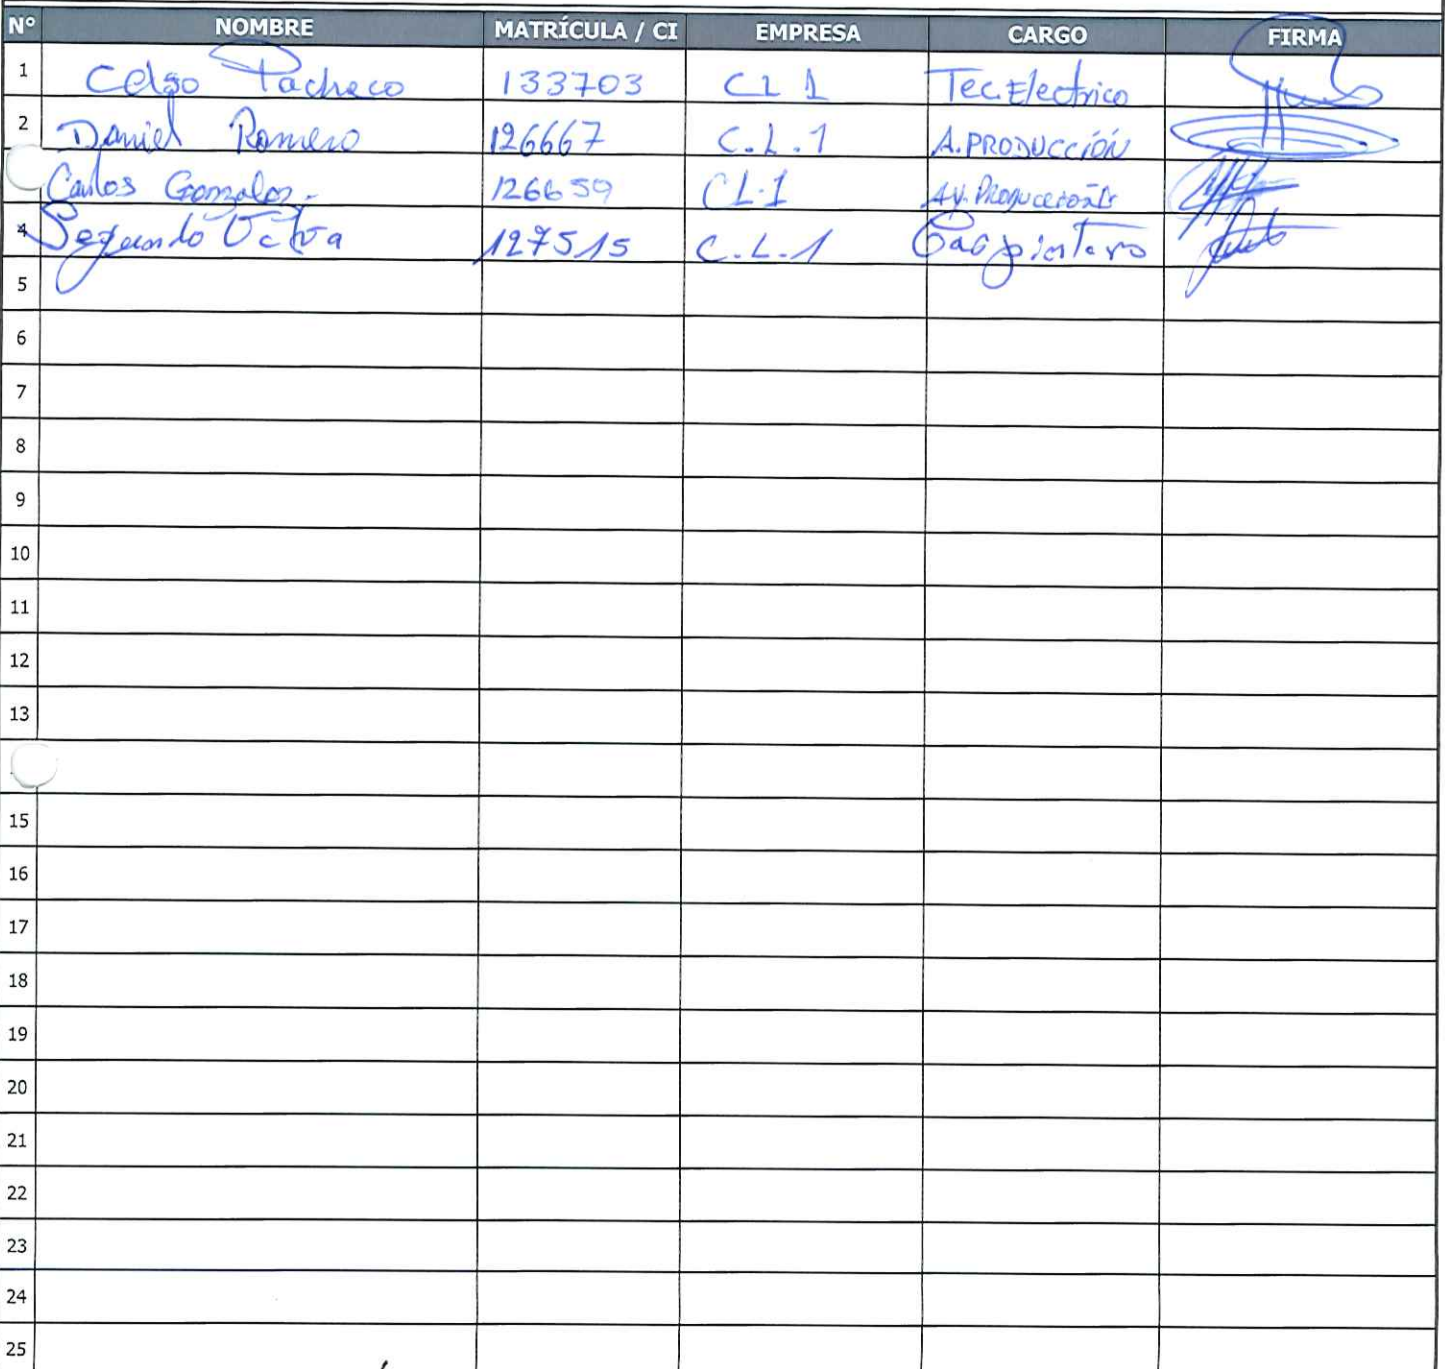 N° NOMBRE MATRÍCULA / CI EMPRESA CARGO FIRMA
1 Celso Pacheco 133703 CL 1 Tec.Electrico
2 Daniel Romero 126667 C.L.1 A.PRODUCCIÓN
Carlos Gonzalez. 126659 CL.1 Ay.
4 Segundo 127515 C.L.1 Carpintero
5
6
7
8
9
10
11
12
13
15
16
17
18
19
20
21
22
23
24
25